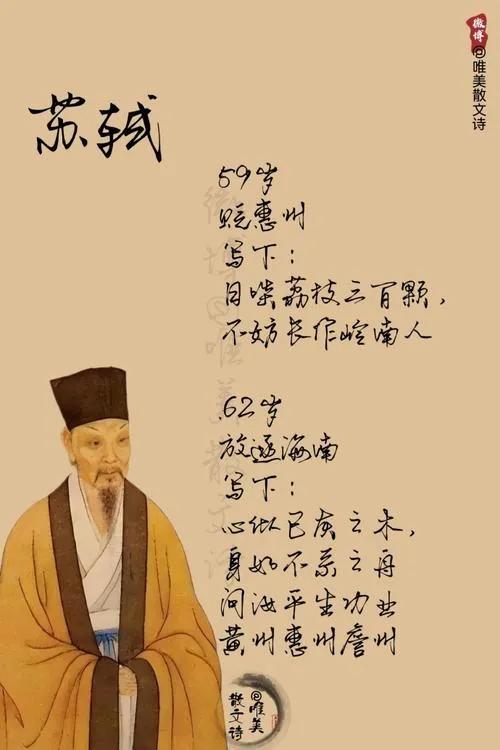 微博@唯美散文诗
苏轼
59岁
贬惠州
写下：
日啖荔枝三百颗，
不妨长作岭南人
62岁
放逐海南
写下：
心似已灰之木，
身如不系之舟
问汝平生功业
黄州惠州詹州
微博@唯美散文诗
@唯美
散文诗